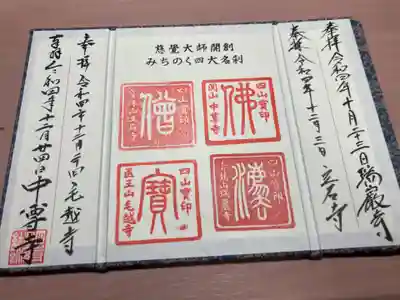 慈覺大師開創
みちのく四大名刹
奉拝 令和四年十月二十三日 瑞巌寺
奉拝 令和四年十二月三日 立石寺
佛
四山寶印
関山中尊寺
僧
四山寶印
寶
四山寶印
医王山毛越寺
奉拝 令和四年十二月二十四日 毛越寺
令和四年十二月廿四日 中尊寺